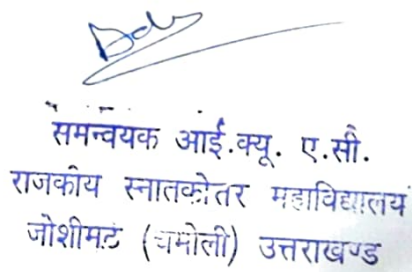 समन्वयक आई.क्यू. ए.सी.
राजकीय स्नातकोतर महाविद्यालय
जोशीमठ (चमोली) उत्तराखण्ड